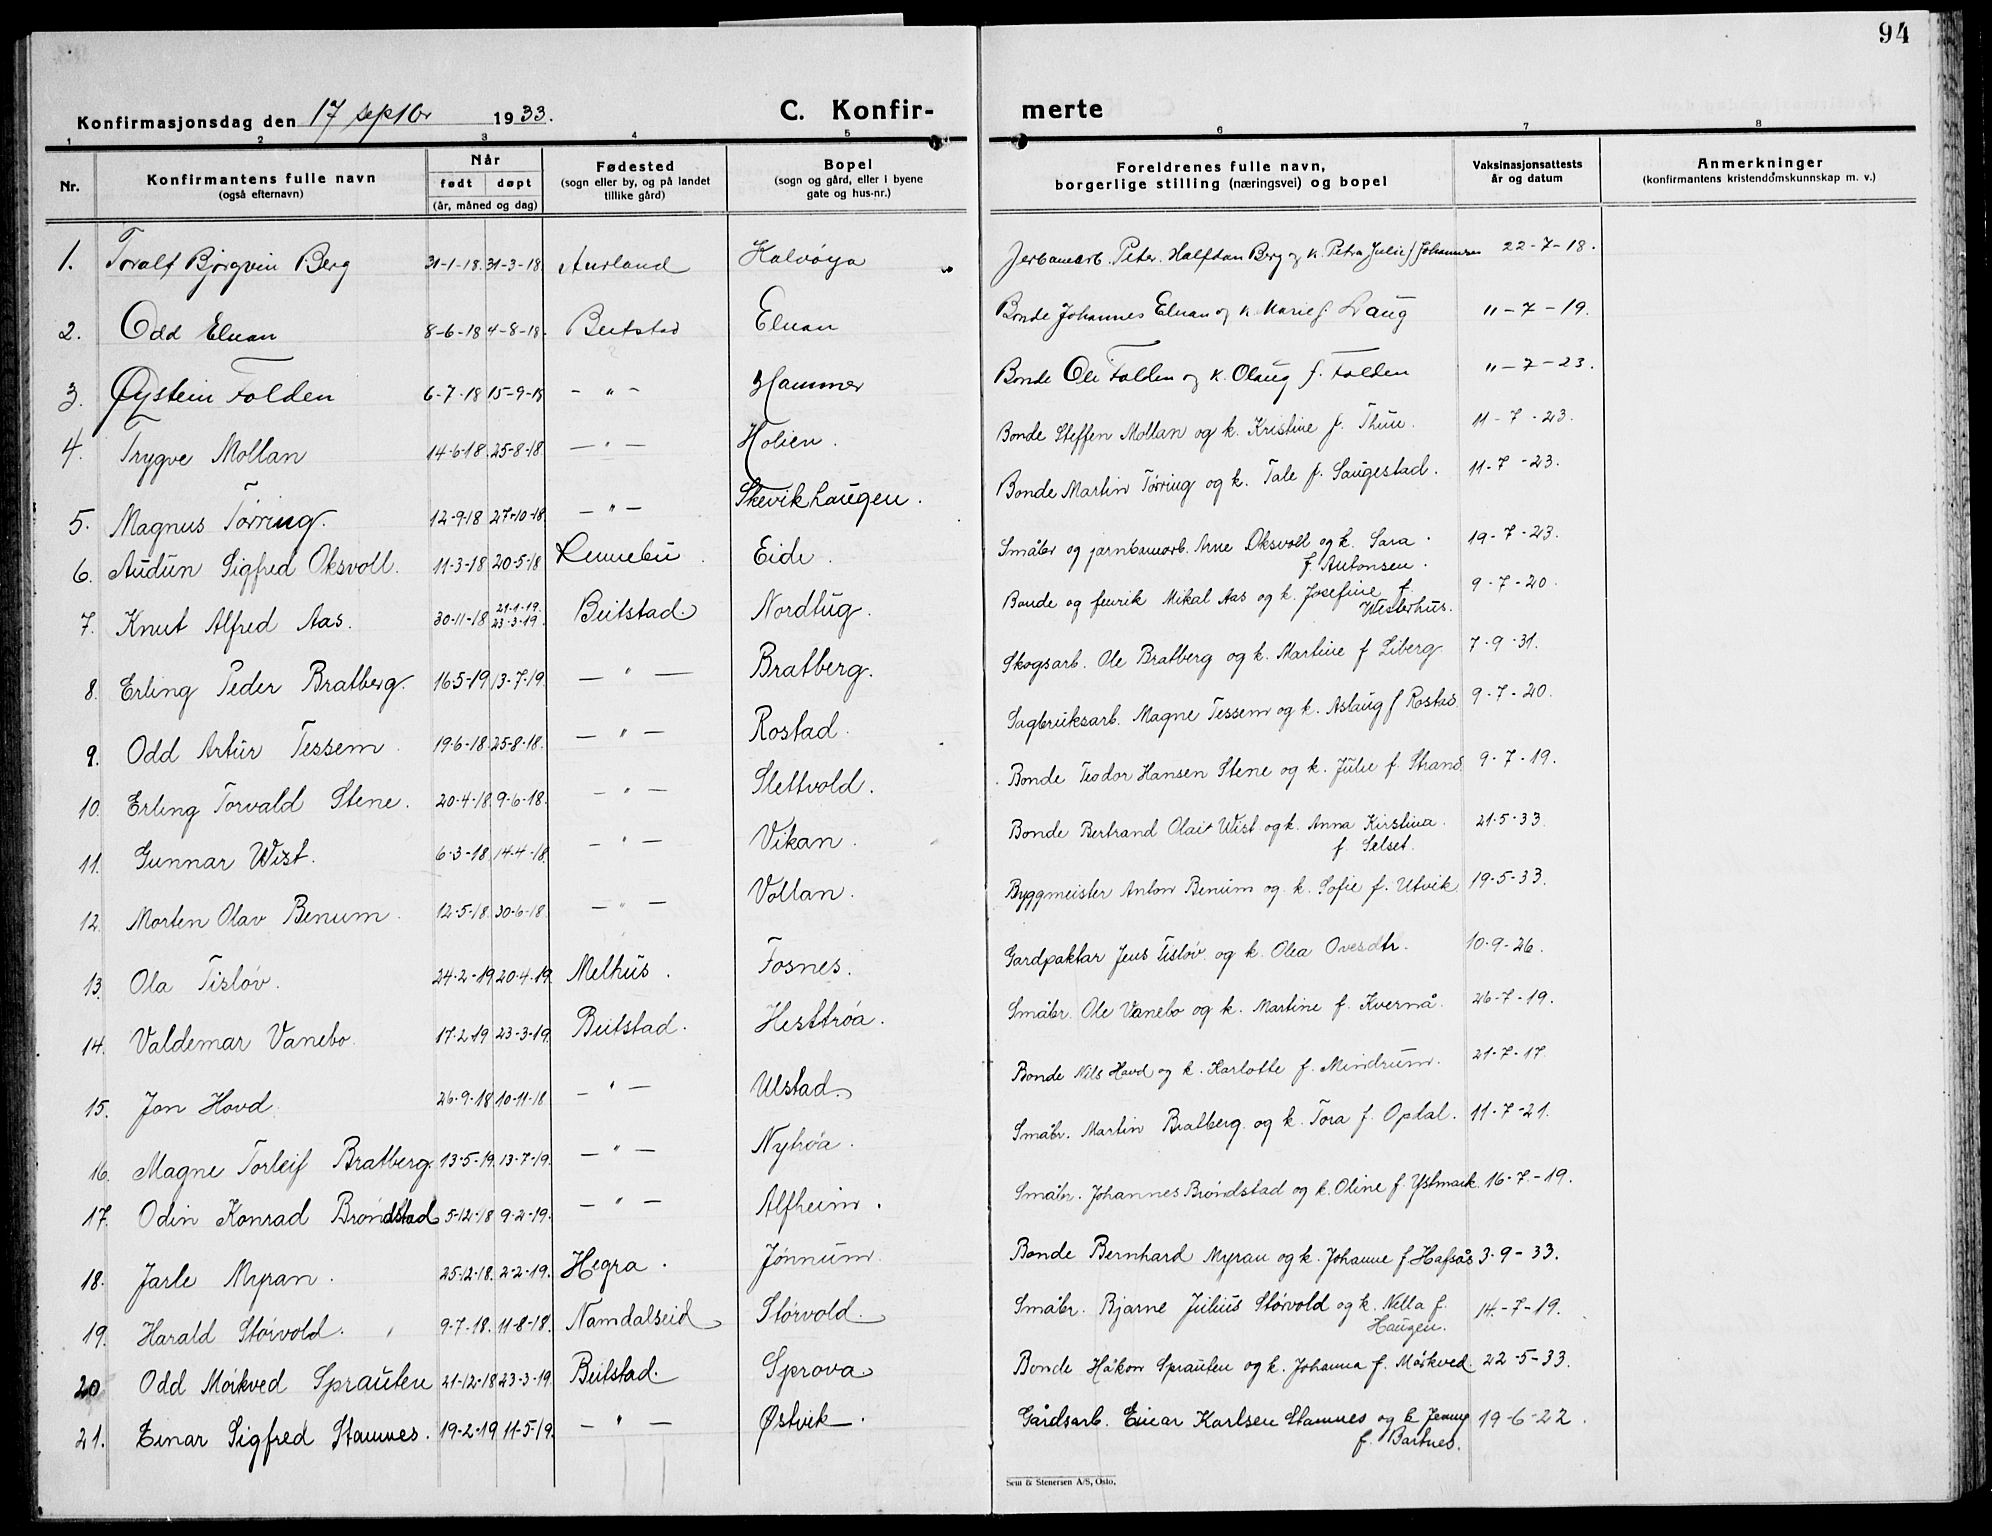 94
Konfirmasjonsdag den 17 septbr 1933. C. Konfirmerte
1 2 3 4 5 6 7 8
Nr. Konfirmantens fulle navn (også efternavn) Når født døpt (år, måned og dag) Fødested (sogn eller by, og på landet tillike gård) Bopel (sogn og gård, eller i byene gate og hus-nr.) Foreldrenes fulle navn, borgerlige stilling (næringsvei) og bopel Vaksinasjonsattests år og datum Anmerkninger (konfirmantens kristendomskunnskap m. v.)
1. Toralf Bjørgvin Berg 31-1-18. 31-3-18. Aurland Kalvøya Jerbanearb. Peter Halfdan Berg og k. Petra Julie f. Johannsen 22-7-18.
2. Odd Elnan 8-6-18 4-8-18. Beitstad Elnan Bonde Johannes Elnan og k. Marie f. Daug 11-7-19.
3. Øystein Folden 6-7-18 15-9-18 — " — Hammer Bonde Ole Folden og k. Olaug f. Folden 11-7-23.
4. Trygve Mollan 14-6-18. 25-8-18 — " — Holien. Bonde Steffen Mollan og k. Kristine f. Thun. 11-7-23.
5. Magnus Tørring. 12-9-18 27-10-18. — " — Skevikhaugen. Bonde Martin Tørring og k. Tale f. Saugestad. 11-7-23.
6. Audun Sigfred Oksvoll. 11-3-18 20-5-18 Rennebu. Eide. Småbr og jarnbanearb. Arne Oksvoll og k. Sara f. Antonsen. 19-7-23.
7. Knut Alfred Aas. 30-11-18 21-1-19. 23-3-19. Beitstad. Nordtug. Bonde og fenrik Mikal Aas og k. Josefine f. Westerhus. 9-7-20.
8. Erling Peder Bratberg. 16-5-19 13-7-19. — " — Bratberg. Skogsarb. Ole Bratberg og k. Martine f Liberg 7-9-31.
9. Odd Artur Tessem. 19-6-18. 25-8-18. — " — Rostad. Sagbruksarb. Magne Tessem og k. Aslaug f Rostad 9-7-20.
10. Erling Torvald Stene. 20-4-18. 9-6-18. — " — Slettvold. Bonde Teodor Hansen Stene og k. Julie f. Strand 9-7-19.
11. Gunnar Wist. 6-3-18. 14-4-18. — " — Vikan. Bonde Bertrand Olai Wist og k. Anna Kirstina f. Selset. 21-5-33.
12. Morten Olav Benum. 12-5-18. 30-6-18. — " — Vollan. Byggmeister Anton Benum og k. Sofie f. Utvik 19-5-33.
13. Ola Tisløv. 24-2-19 20-4-19. Melhus. Fosnes. Gardpaktar Jens Tisløv og k. Olea Ovesdtr. 10-9-26.
14. Valdemar Vanebo. 17-2-19 23-3-19. Beitstad. Hesttrøa. Småbr. Ole Vanebo og k. Martine f. Kvernå. 26-7-19.
15. Jon Hovd. 26-9-18 10-11-18 — " — Ulstad. Bonde Nils Hovd og k. Karlotte f. Mindrum. 21-7-17.
16. Magne Torleif Bratberg. 13-5-19. 13-7-19. — " — Nytrøa. Småbr. Martin Bratberg og k. Tora f. Opdal. 11-7-21.
17. Odin Konrad Brøndstad 5-12-18 9-2-19. — " — Alfheim. Småbr. Johannes Brøndstad og k. Oline f. Ystmark. 16-7-19.
18. Jarle Myran. 25-12-18. 2-2-19. Hegra. Jønnum. Bonde Bernhard Myran og k. Johanne f. Hafsås 3-9-33.
19. Harald Størvold. 9-7-18. 11-8-18. Namdalseid Størvold. Småbr. Bjarne Julius Størvold og k. Nella f. Haugen. 14-7-19.
20 Odd Mørkved Sprauten 21-12-18 23-3-19 Beitstad. Sprova Bonde Håkon Sprauten og k. Johanna f. Mørkved. 22-5-33.
21. Einar Sigfred Stamnes. 19-2-19 11-5-19. — " — Østvik. Gårdsarb. Einar Karlsen Stamnes og k Jenny f. Bartnes. 19-6-22.
Sem & Stenersen A/S, Oslo.